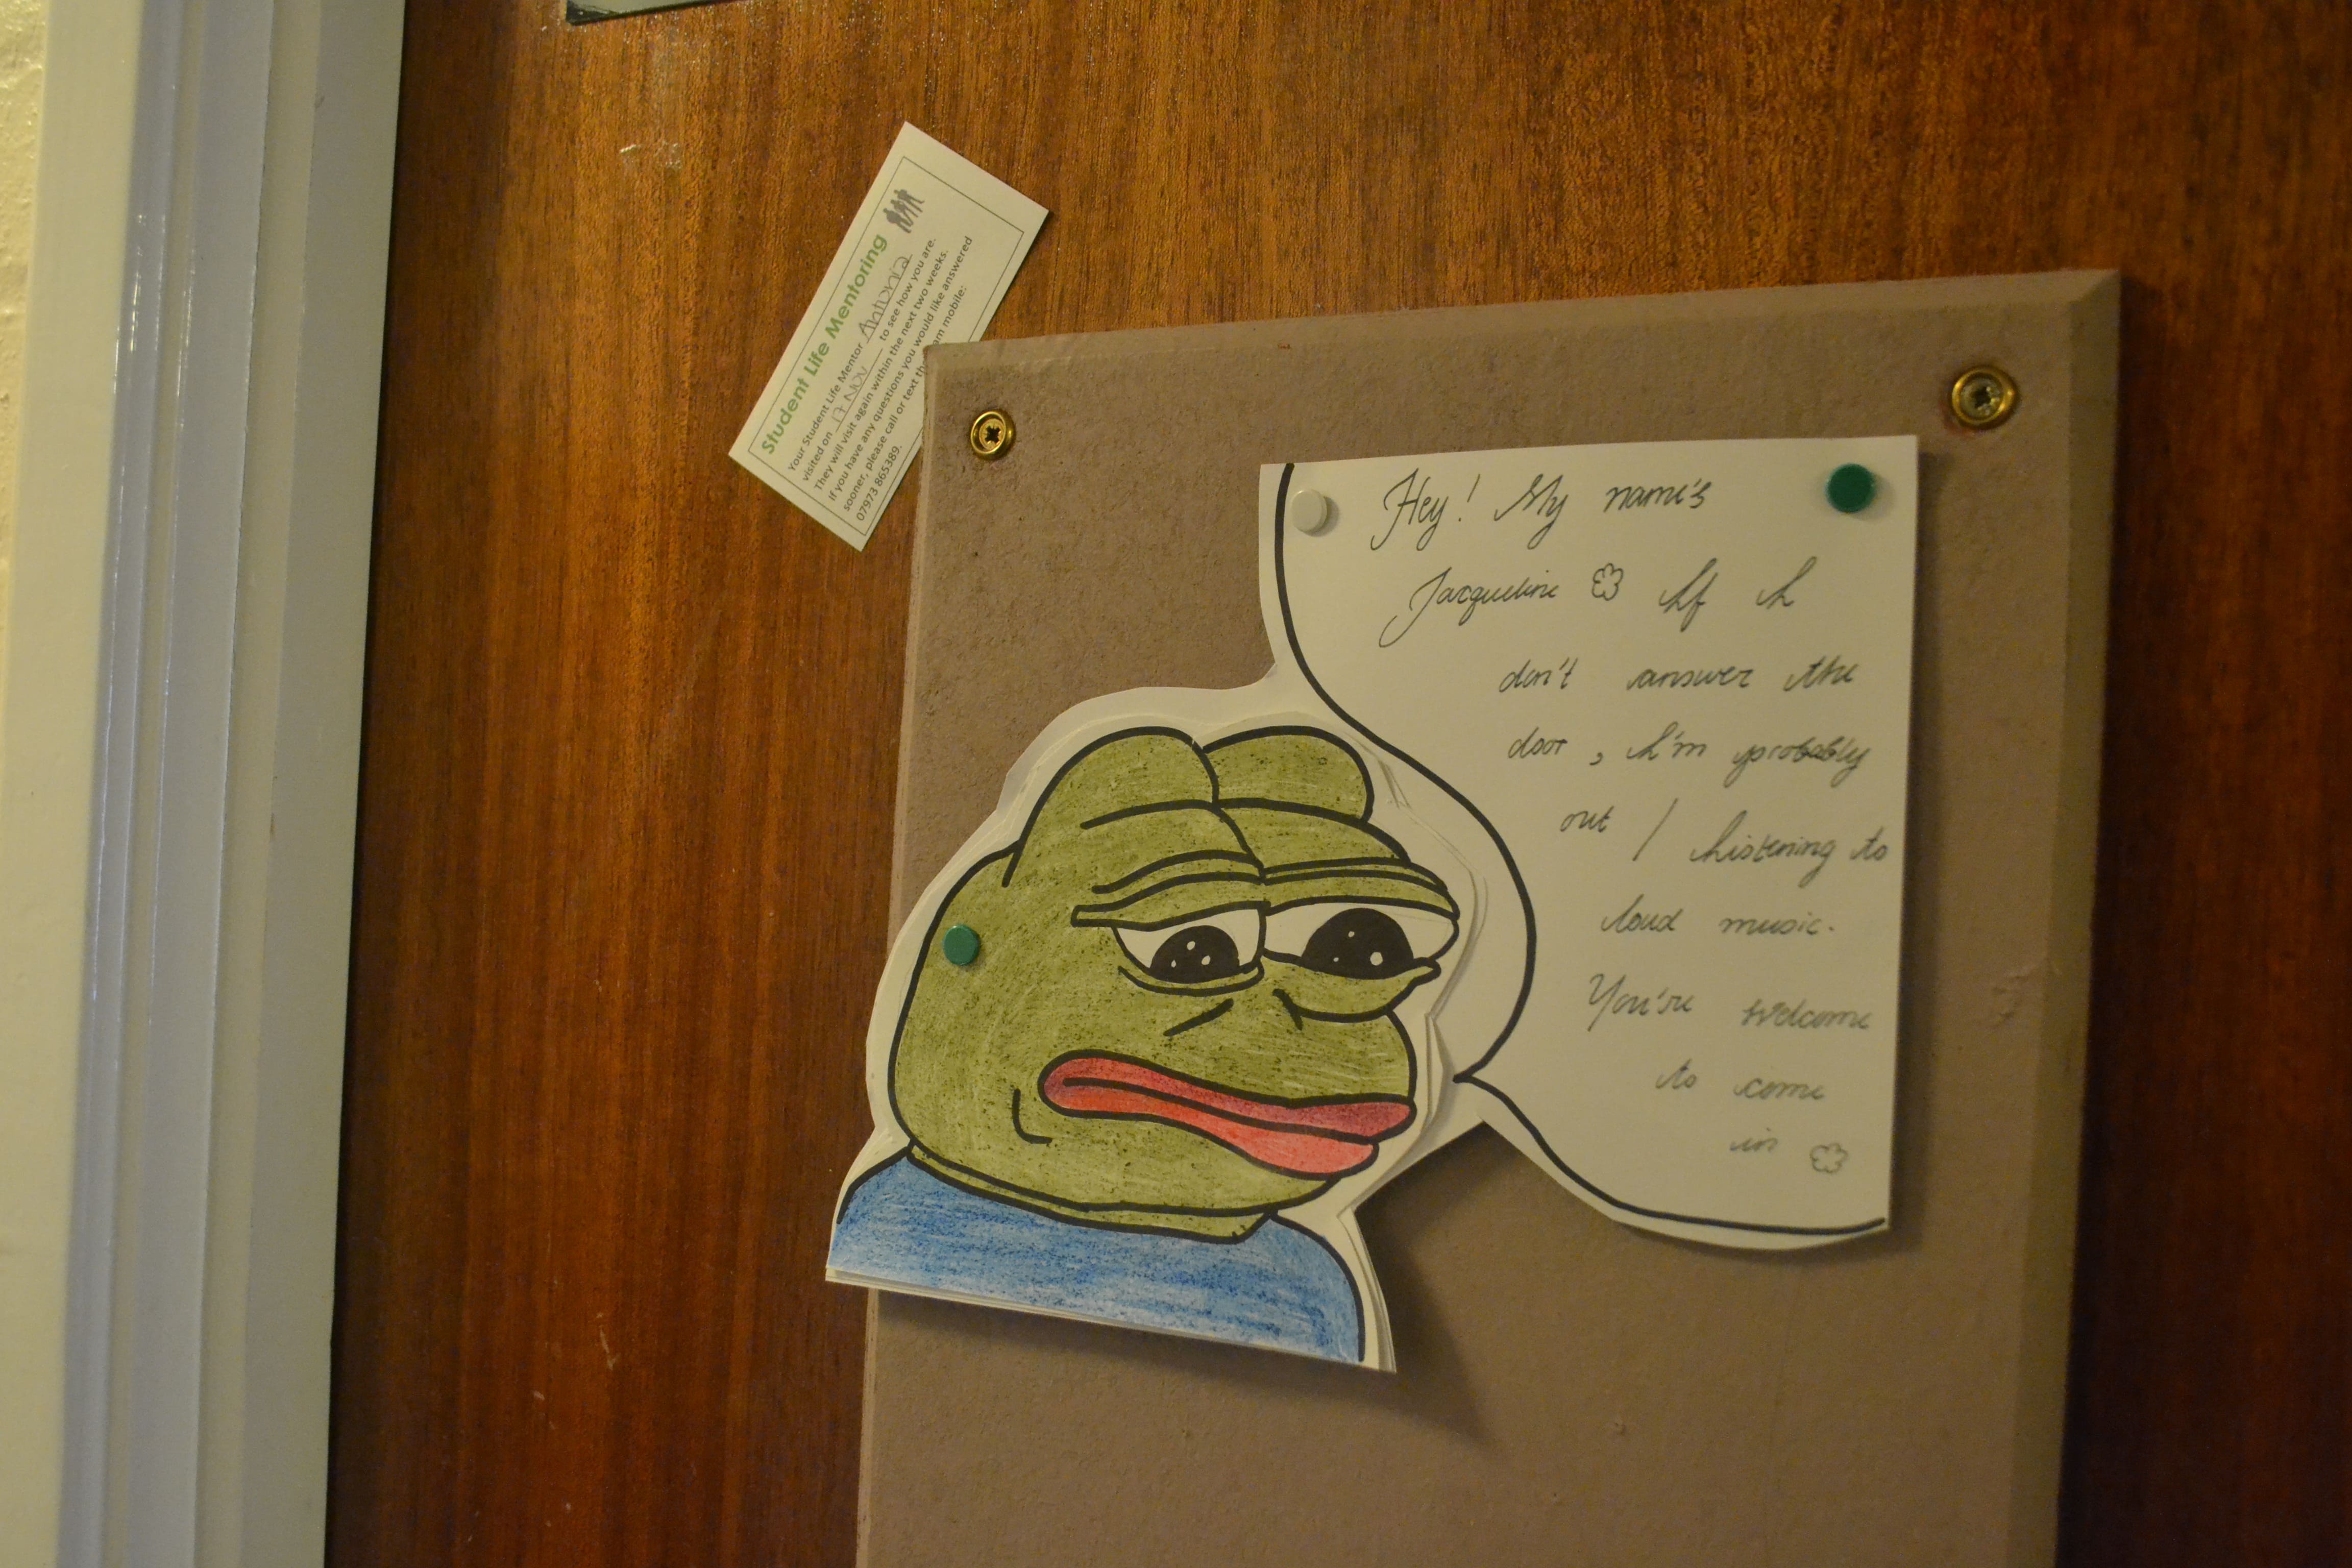 Student Life Mentoring
Your Student Life Mentor Antonia
visited on 17 NOV to see how you are.
They will visit again within the next two weeks.
If you have any questions you would like answered
sooner, please call or text mobile:
07973 865389.
Hey! My name's
Jacqueline If I
don't answer the
door, I'm probably
out / listening to
loud music.
You're welcome
to come
in